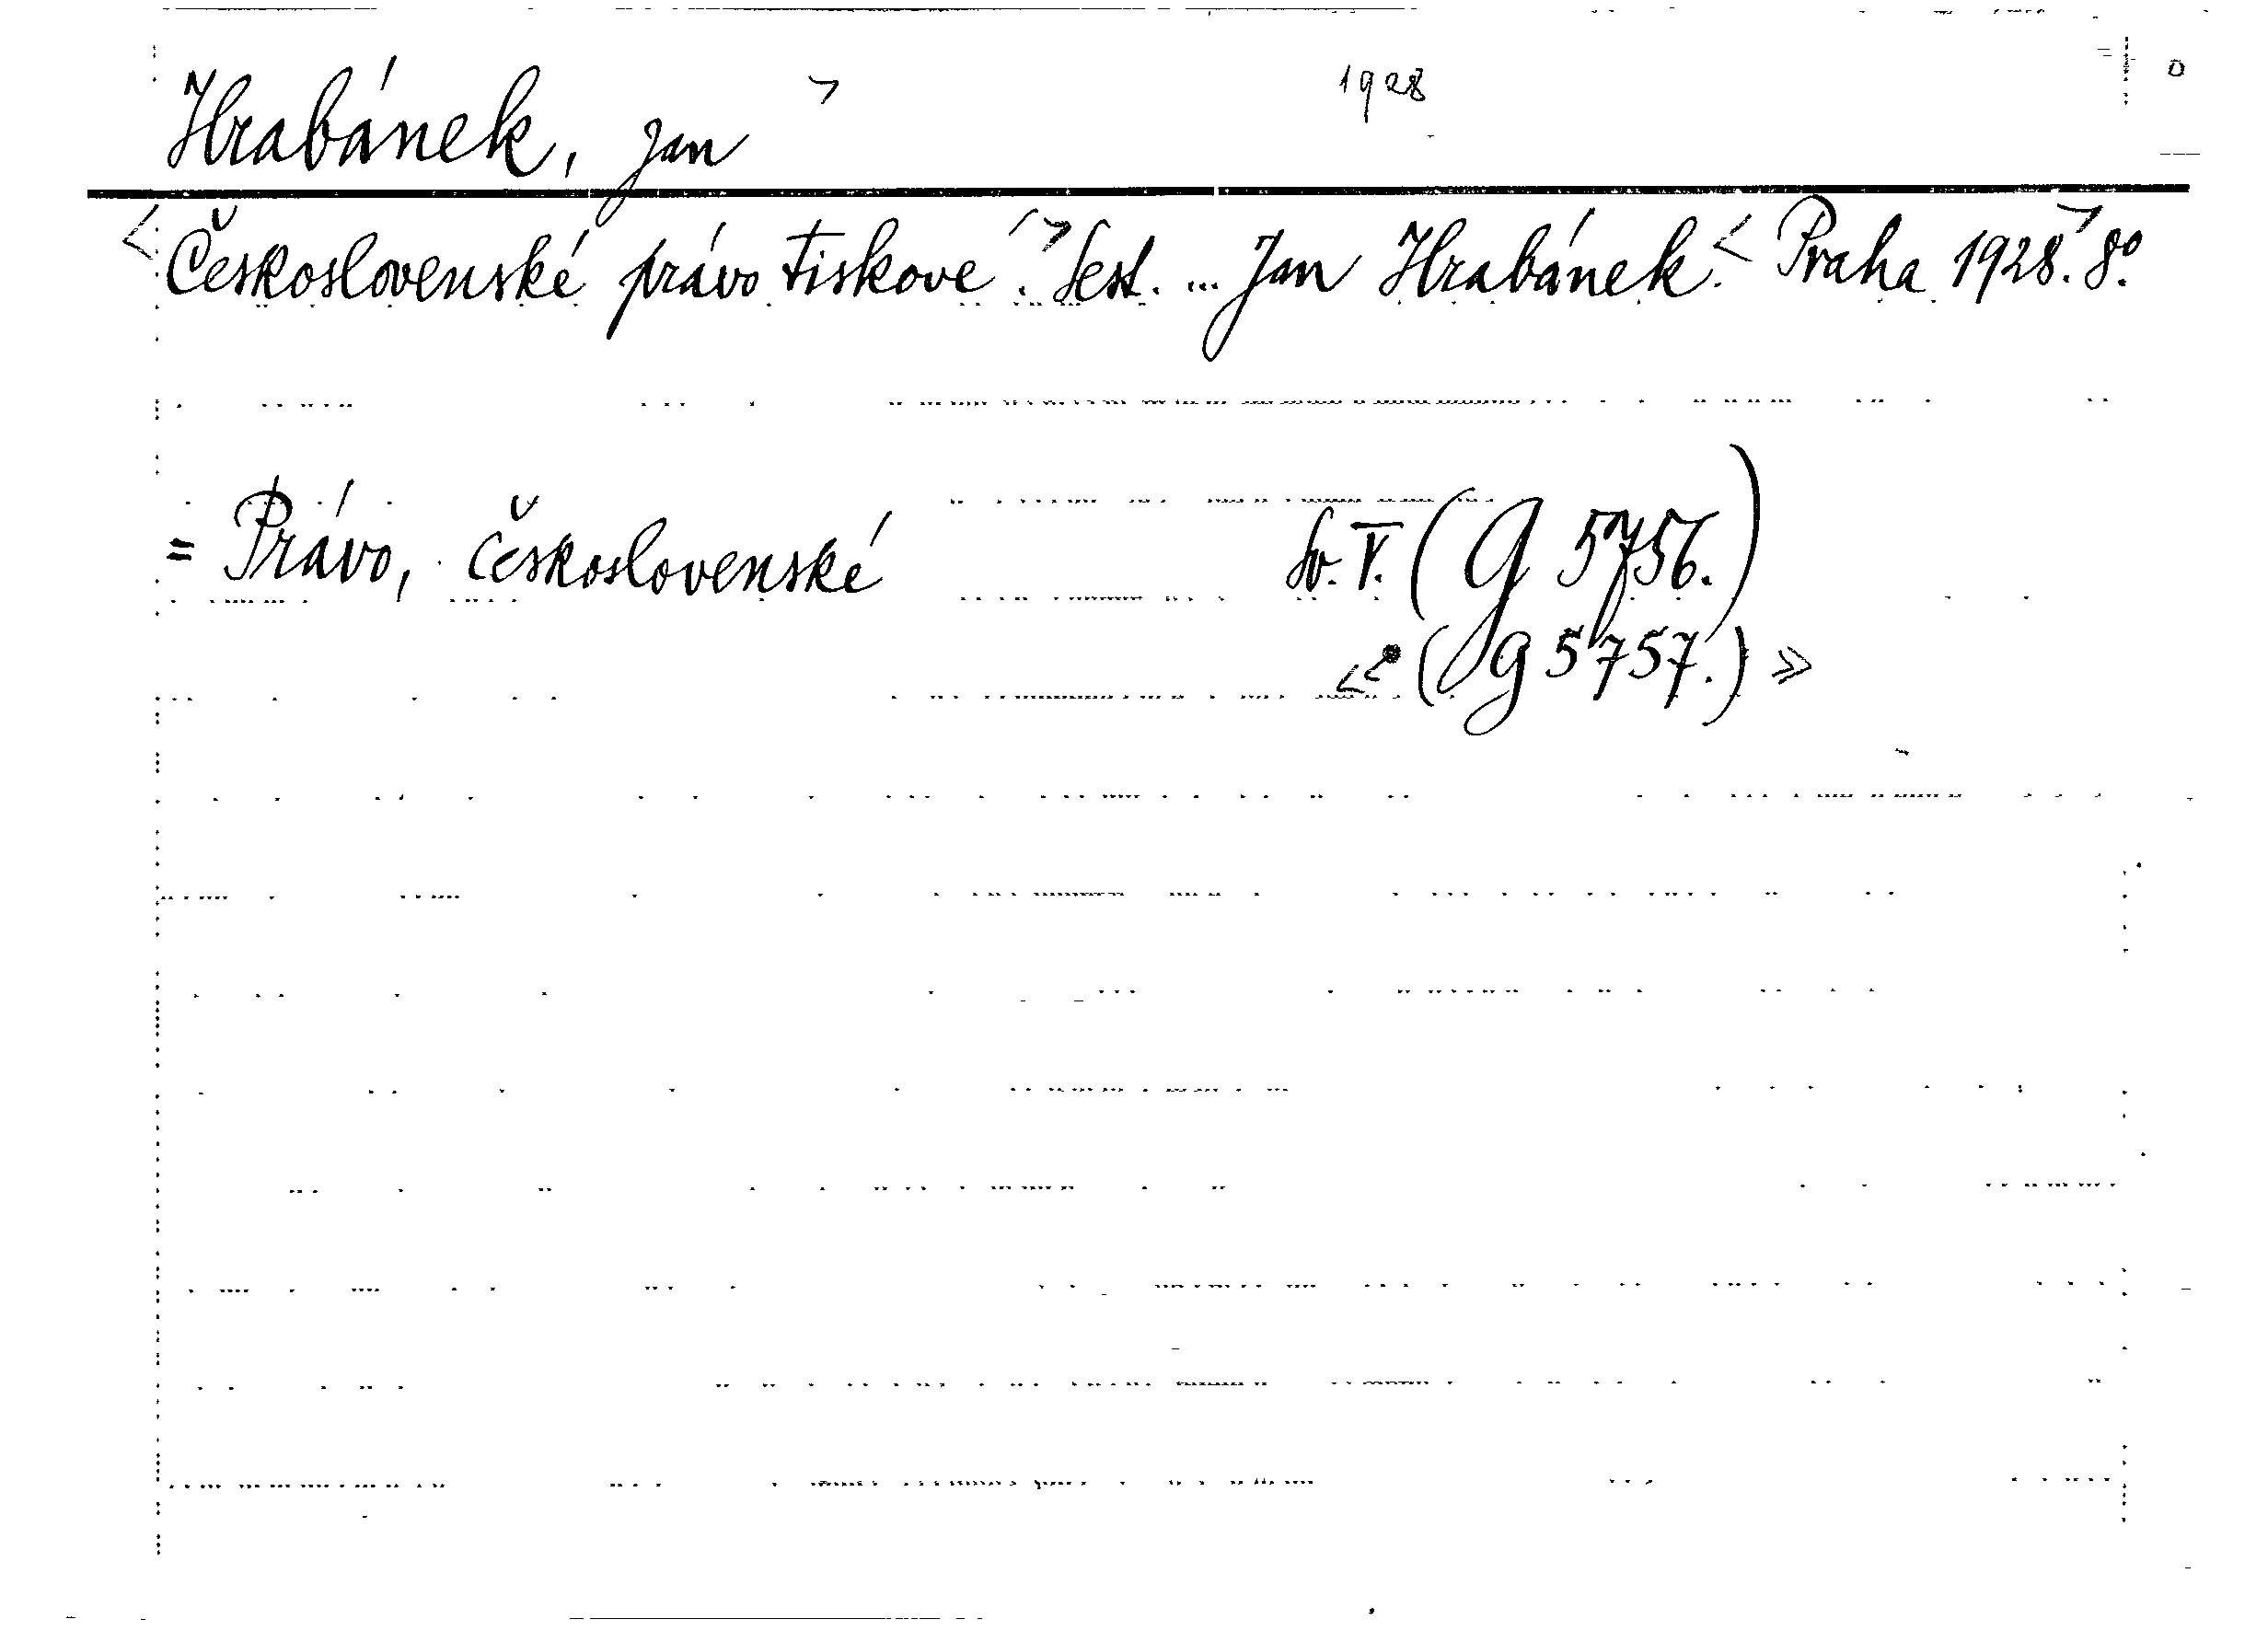 Hrabánek, Jan > 1928
<Československé právo tiskové.> Sest. ... Jan Hrabánek.< Praha 1928.> 8°.
= Právo, československé Sv. V. (g 5756.)
<<• (g 5757.) >>